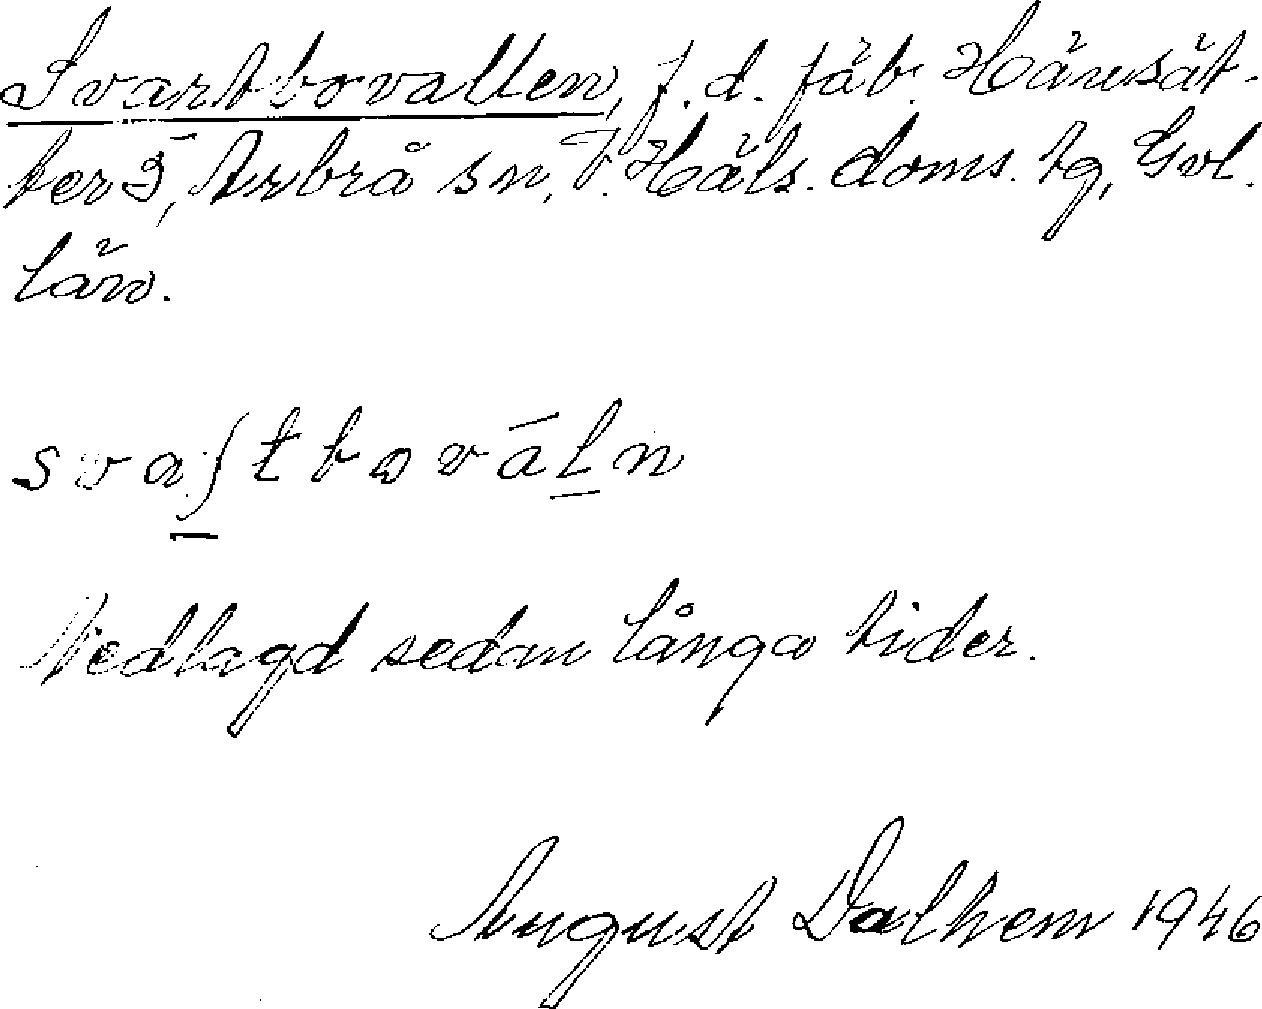 Svartbovallen, f. d. fäb. Hänsät-
ter 5, Arbrå sn, V. Häls. doms. tg, Gvl.
län.
svaʃtbovāln
Nedlagd sedan långa tider.
August Dalhem 1946